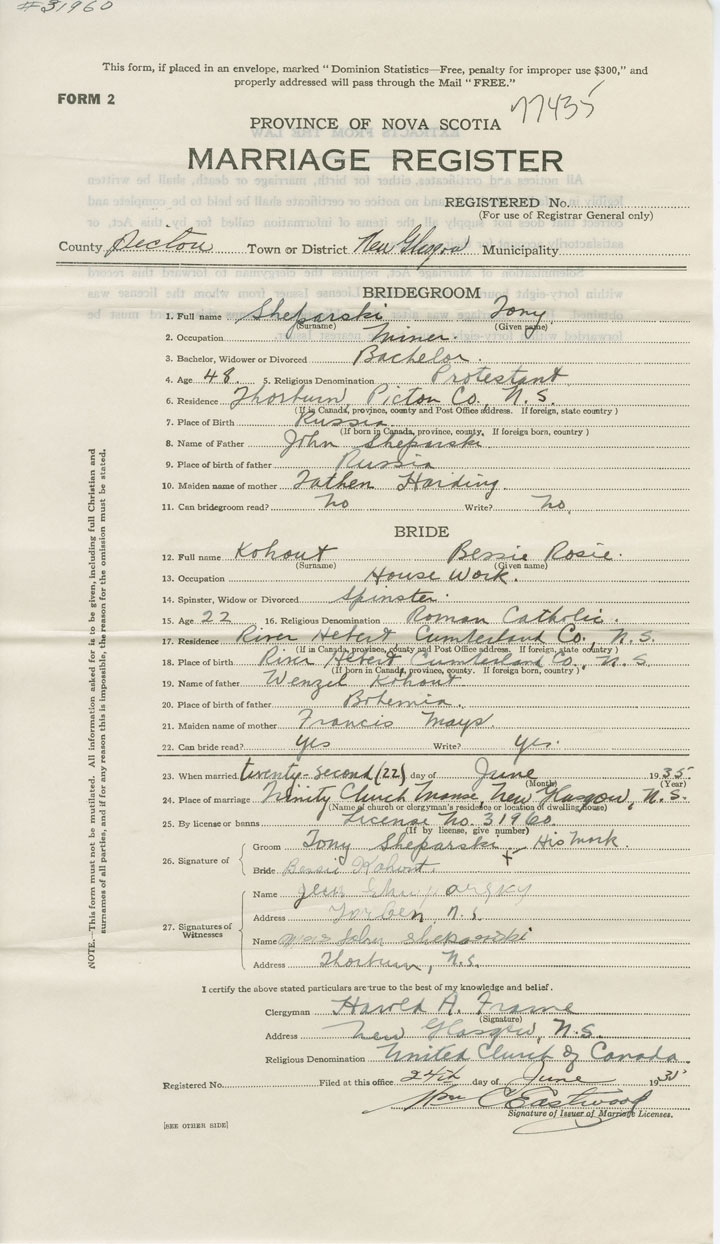 #31960
This form, if placed in an envelope, marked "Dominion Statistics—Free, penalty for improper use $300," and
properly addressed will pass through the Mail "FREE."
FORM 2
77435
PROVINCE OF NOVA SCOTIA
MARRIAGE REGISTER
REGISTERED No.
(For use of Registrar General only)
County Pictou Town or District New Glasgow Municipality
BRIDEGROOM
1. Full name Sheparski Tony
(Surname) (Given name)
2. Occupation Miner.
3. Bachelor, Widower or Divorced Bachelor.
4. Age 48. 5. Religious Denomination Protestant
6. Residence Thorburn, Picton Co., N.S.
(If in Canada, province, county and Post Office address. If foreign, state country)
7. Place of Birth Russia
(If born in Canada, province, county. If foreign born, country)
8. Name of Father John Sheparski
9. Place of birth of father Russia
10. Maiden name of mother Harding.
11. Can bridegroom read? no Write? no,
BRIDE
12. Full name Kohout Bessie Rosie.
(Surname) (Given name)
13. Occupation House Work.
14. Spinster, Widow or Divorced Spinster.
15. Age 22 16. Religious Denomination Roman Catholic.
17. Residence River Hebert Cumberland Co., N.S.
(If in Canada, province, county and Post Office address. If foreign, state country)
18. Place of birth River Hebert Cumberland Co., N.S.
(If born in Canada, province, county. If foreign born, country)
19. Name of father Wenzel Kohout
20. Place of birth of father Bohemia.
21. Maiden name of mother Francis Mays.
22. Can bride read? yes Write? yes.
23. When married twenty-second (22) day of June 1935.
(Month) (Year)
24. Place of marriage Trinity Church Manse, New Glasgow, N.S.
(Name of church or clergyman's residence or location of dwelling house)
25. By license or banns License No. 31960.
(If by license, give number)
26. Signature of
Groom Tony Sheparski x His Mark.
Bride Bessie Kohout.
27. Signatures of
Witnesses
Name
Address N.S.
Name Mrs John Sheparski
Address Thorburn, N.S.
NOTE.—This form must not be mutilated. All information asked for is to be given, including full Christian and
surnames of all parties, and if for any reason this is impossible, the reason for the omission must be stated.
I certify the above stated particulars are true to the best of my knowledge and belief.
Clergyman Harold A. Frame
(Signature)
Address New Glasgow, N.S.
Religious Denomination United Church of Canada.
Registered No. Filed at this office 24th day of June 1935
Wm C Eastwood
Signature of Issuer of Marriage Licenses.
[SEE OTHER SIDE]